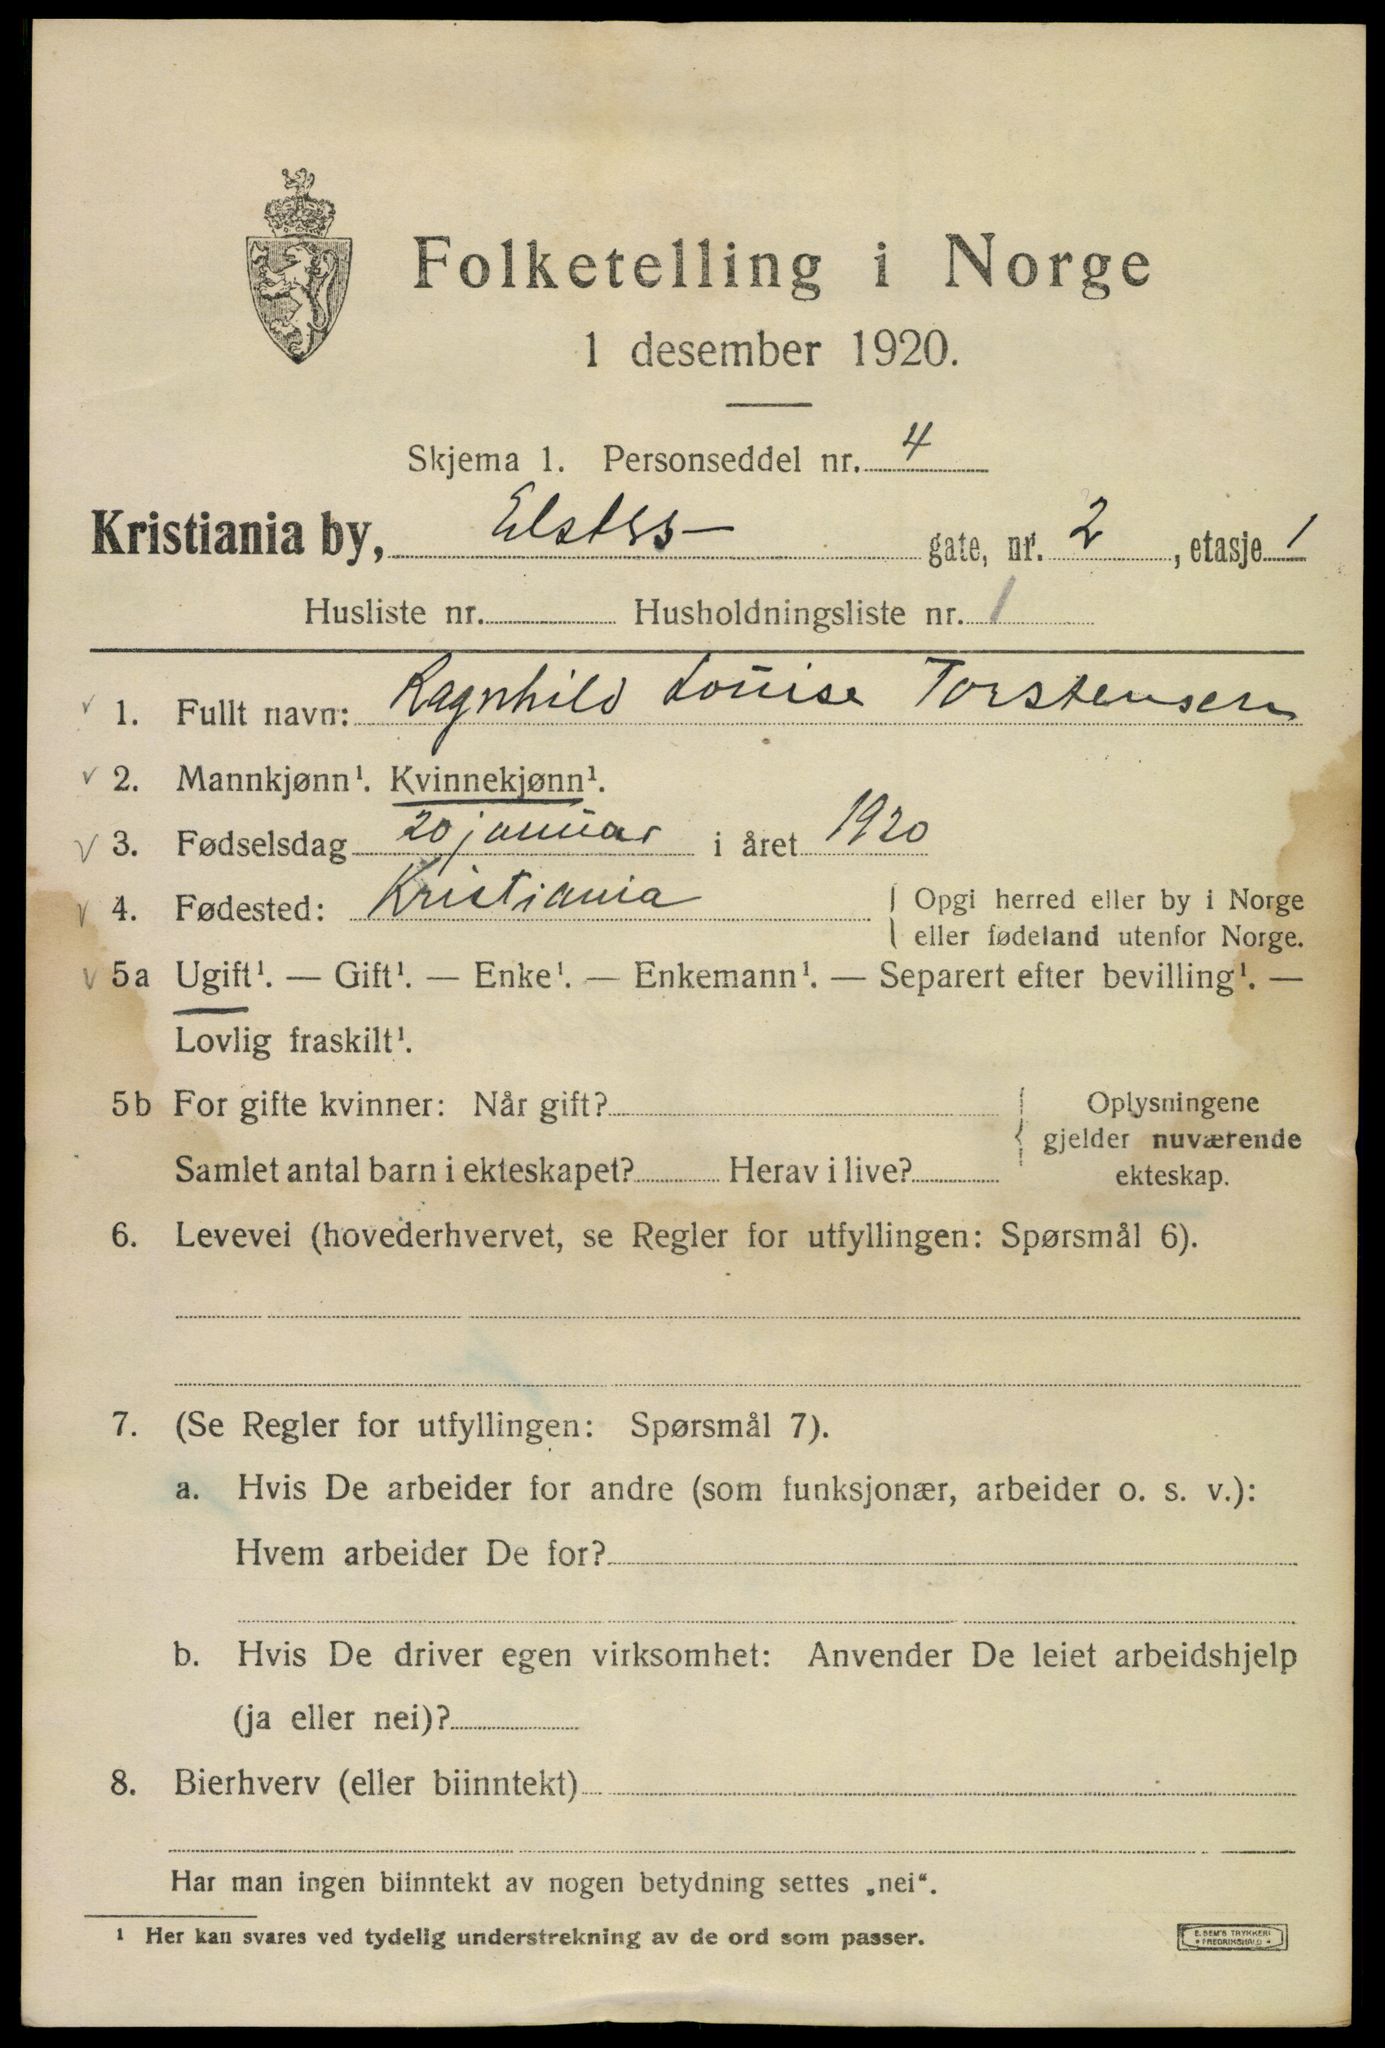 Folketelling i Norge
1 desember 1920.
Skjema 1. Personseddel nr. 4
Kristiania by, Elsters- gate, nr. 2, etasje 1
Husliste nr. Husholdningsliste nr. 1
1. Fullt navn: Ragnhild Louise Torstensen
2. Mannkjønn¹. Kvinnekjønn¹.
3. Fødselsdag 20 januar i året 1920
4. Fødested: Kristiania { Opgi herred eller by i Norge
eller fødeland utenfor Norge.
5a Ugift¹. — Gift¹. — Enke¹. — Enkemann¹. — Separert efter bevilling¹. —
Lovlig fraskilt¹.
5b For gifte kvinner: Når gift?
Samlet antal barn i ekteskapet? Herav i live?
{ Oplysningene
gjelder nuværende
ekteskap.
6. Levevei (hovederhvervet, se Regler for utfyllingen: Spørsmål 6).
7. (Se Regler for utfyllingen: Spørsmål 7).
a. Hvis De arbeider for andre (som funksjonær, arbeider o. s. v.):
Hvem arbeider De for?
b. Hvis De driver egen virksomhet: Anvender De leiet arbeidshjelp
(ja eller nei)?
8. Bierhverv (eller biinntekt)
Har man ingen biinntekt av nogen betydning settes „nei“.
¹ Her kan svares ved tydelig understrekning av de ord som passer.
E. SEM'S TRYKKERI
* FREDRIKSHALD *